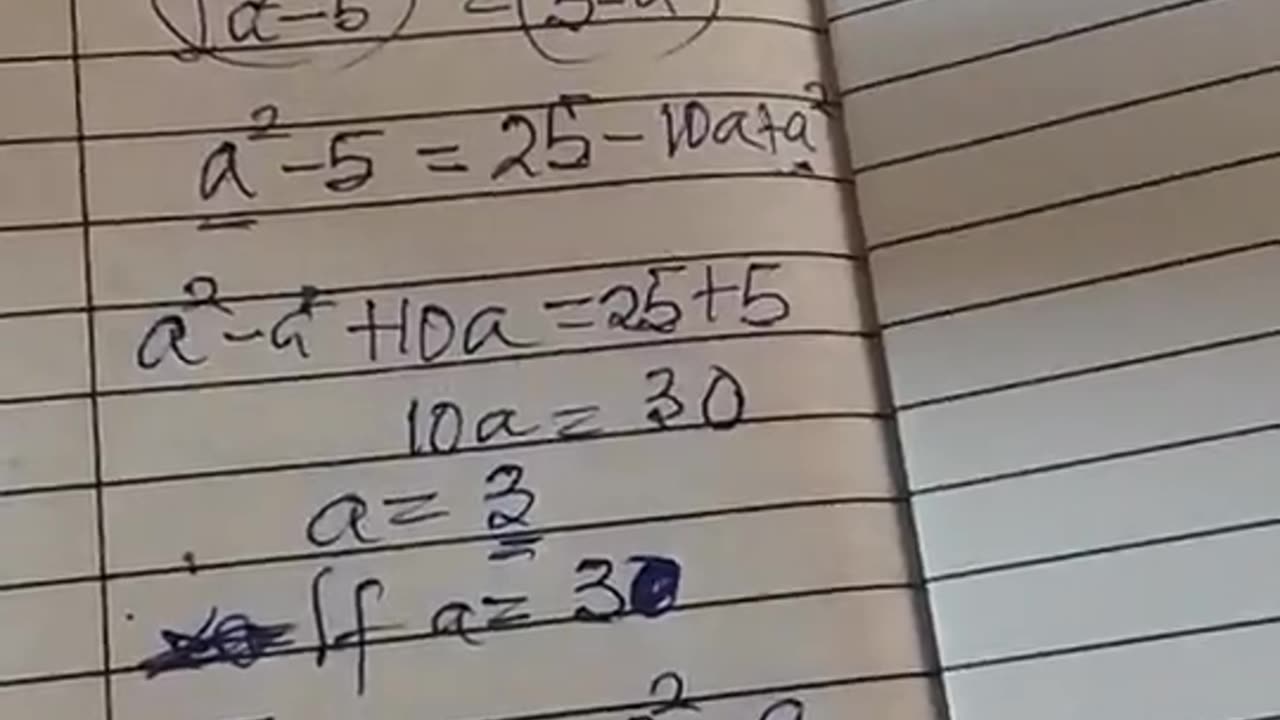 a² - 5 = 25 - 10a + a²
a² - a² + 10a = 25 + 5
10a = 30
a = 3
If a = 3